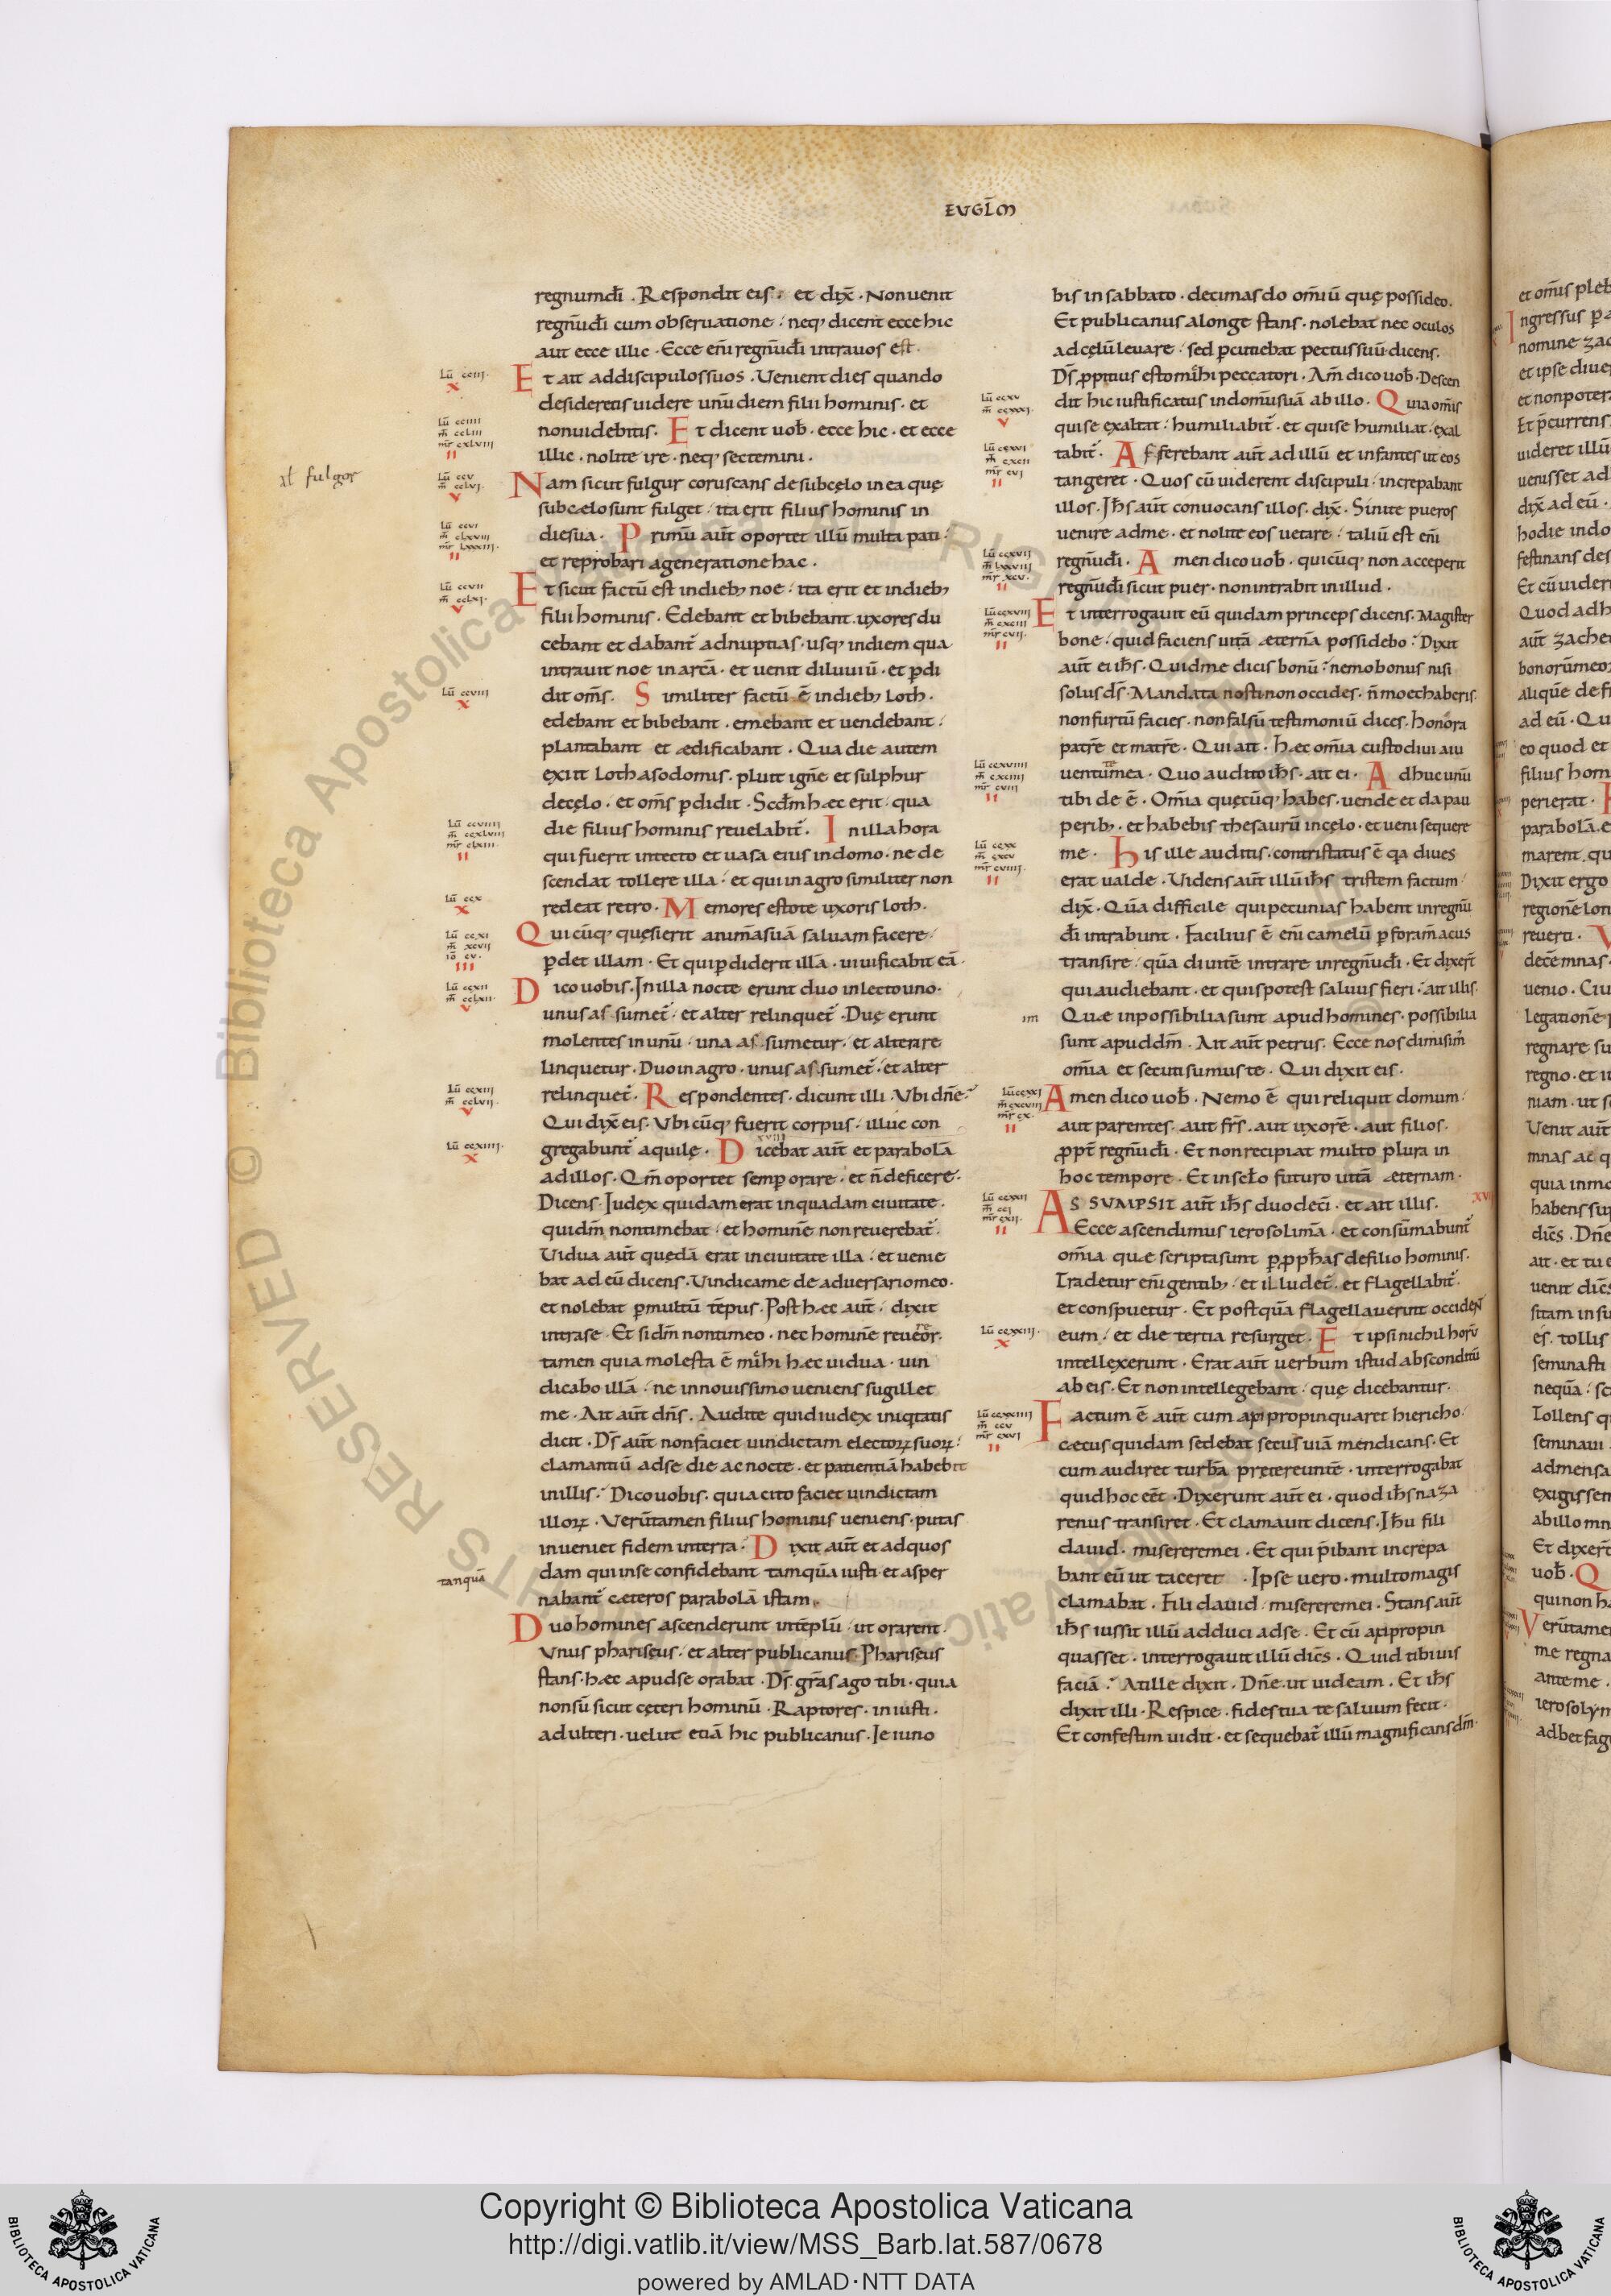 EVGL̄M
regnumdī. Respondit eis. et dix̄. Nonuenit
regnūdī cum obseruatione. neq; dicent ecce hic
aut ecce illic. Ecce enī regnūdī intrauos est.
Et ait addiscipulossuos. Uenient dies quando
desideretis uidere unū diem filii hominis. et
nonuidebitis. Et dicent uob̄. ecce hic. et ecce
illic. nolite ire. neq; sectemini.
Nam sicut fulgur coruscans desubcęlo in ea quę
subcælosunt fulget. ita erit filius hominis in
diesua. Primū aūt oportet illū multa pati.
et reprobari ageneratione hac.
Et sicut factū est indieb; noe. ita erit et indieb;
filii hominis. Edebant et bibebant. uxores du
cebant et dabant̄ adnuptias. usq; indiem qua
intrauit noe in arcā. et uenit diluuiū. et p̄di
dit om̄s. Similiter factū ē indieb; Loth.
edebant et bibebant. emebant et uendebant.
plantabant et ædificabant. Qua die autem
exiit Loth asodomis. pluit ignē et sulphur
decęlo. et om̄s p̄didit. Scd̄m hæc erit. qua
die filius hominis reuelabit̄. In illa hora
qui fuerit intecto et uasa eius indomo. ne de
scendat tollere illa. et qui in agro similiter non
redeat retro. Memores estote uxoris loth.
Quicūq; quęsierit animāsuā saluam facere.
p̄det illam. Et quip̄diderit illā. uiuificabit eā.
Dico uobis. Inilla nocte erunt duo inlecto uno.
unus assumet̄. et alter relinquet̄. Duę erunt
molentes in unū. una assumetur. et altera re
linquetur. Duo in agro. unus assumet̄. et alter
relinquet̄. Respondentes. dicunt illi. Ubi dn̄e.
Qui dix̄ eis. Vbicūq; fuerit corpus. illuc con
gregabunt̄ aquilę. Dicebat aūt et parabolā
adillos. Qm̄ oportet semp̄ orare. et n̄ deficere.
Dicens. Iudex quidam erat inquadam ciuitate.
quidm̄ nontimebat. et hominē non reuerebat̄.
Uidua aūt quędā erat inciuitate illa. et uenie
bat ad eū dicens. Uindica me de aduersario meo.
et nolebat p̄multū tēpus. Post hæc aūt. dixit
intrase. Et si dm̄ nontimeo. nec hominē reueor.
tamen quia molesta ē mihi hæc uidua. uin
dicabo illā. ne in nouissimo ueniens sugillet
me. Ait aūt dn̄s. Audite quid iudex iniqtatis
dicit. Ds̄ aūt nonfaciet uindictam electoꝝ suoꝝ.
clamantiū adse die ac nocte. et patientiā habebit
inillis. Dico uobis. quia cito faciet uindictam
illoꝝ. Verūtamen filius hominis ueniens. putas
inueniet fidem interra. Dixit aūt et adquos
dam qui inse confidebant tamquā iusti. et asper
nabant̄ cæteros parabolā istam.
Duo homines ascenderunt intēplū. ut orarent.
Vnus phariseus. et alter publicanus. Phariseus
stans. hæc apudse orabat. Ds̄ grās ago tibi. quia
nonsū sicut cęteri hominū. Raptores. iniusti.
adulteri. uelut etiā hic publicanus. Ieiuno
bis insabbato. decimas do om̄iū quę possideo.
Et publicanus alonge stans. nolebat nec oculos
adcęlū leuare. sed p̄cutiebat pectussuū dicens.
Ds̄ ꝓpitius esto mihi peccatori. Am̄ dico uob̄. Descen
dit hic iustificatus indomūsuā ab illo. Quia om̄is
quise exaltat. humiliabit̄. et quise humiliat. exal
tabit̄. Afferebant aūt ad illū et infantes ut eos
tangeret. Quos cū uiderent discipuli. increpabant
illos. Ihs̄ aūt conuocans illos. dix̄. Sinite pueros
uenire adme. et nolite eos uetare. taliū est enī
regnūdī. Amen dico uob̄. quicūq; non acceperit
regnūdī sicut puer. nonintrabit inillud.
Et interrogauit eū quidam princeps dicens. Magister
bone. quid faciens uitā æternā possidebo. Dixit
aūt ei ihs̄. Quidme dicis bonū. nemo bonus nisi
solus ds̄. Mandata nosti non occides. n̄ moechaberis.
nonfurtū facies. nonfalsū testimoniū dices. honora
patrē et matrē. Qui ait. Hæc om̄ia custodiui aiu
uentutemea. Quo audito ihs̄. ait ei. Adhuc unū
tibi de ē. Om̄ia quęcūq; habes. uende et da pau
perib;. et habebis thesaurū incęlo. et ueni sequere
me. His ille auditis. contristatus ē qa diues
erat ualde. Uidens aūt illū ihs̄ tristem factum
dix̄. Quā difficile qui pecunias habent inregnū
dī intrabunt. Facilius ē enī camelū p̄ foram̄ acus
transire. quā diuitē intrare inregnūdī. Et dixer̄t
qui audiebant. et quis potest saluus fieri. ait illis.
Quæ inpossibilia sunt apud homines. possibilia
sunt apud dm̄. Ait aūt petrus. Ecce nos dimisim̄
om̄ia et secuti sumus te. Qui dixit eis.
Amen dico uob̄. Nemo ē qui reliquit domum.
aut parentes. aut fr̄s. aut uxorē. aut filios.
ꝓpt̄ regnūdī. Et non recipiat multo plura in
hoc tempore. Et insecl̄o futuro uitā æternam.
ASSUMPSIT aūt ihs̄ duodeci. et ait illis.
Ecce ascendimus ierosolimā. et consūmabunt̄
om̄ia quæ scripta sunt p̄ ꝓph̄as defilio hominis.
Tradetur enī gentib;. et illudet̄. et flagellabit̄.
et conspuetur. Et postquā flagellauerint occident
eum. et die tertia resurget. Et ipsi nichil horū
intellexerunt. Erat aūt uerbum istud absconditū
ab eis. Et non intellegebant. quę dicebantur.
Factum ē aūt cum appropinquaret hiericho.
cæcus quidam sedebat secus uiā mendicans. Et
cum audiret turbā prętereuntē. interrogabat
quid hoc eēt. Dixerunt aūt ei. quod ihs̄ naza
renus transiret. Et clamauit dicens. Ihū fili
dauid. miserere mei. Et qui p̄ibant increpa
bant eū ut taceret. Ipse uero. multomagis
clamabat. Fili dauid. miserere mei. Stans aūt
ihs̄ iussit illū adduci adse. Et cū appropin
quasset. interrogauit illū dic̄s. Quid tibi uis
faciā. Atille dixit. Dn̄e. ut uideam. Et ihs̄
dixit illi. Respice. fides tua te saluum fecit.
Et confestim uidit. et sequebat̄ illū magnificans dm̄.
at fulgor
tanquā
Copyright © Biblioteca Apostolica Vaticana
http://digi.vatlib.it/view/MSS_Barb.lat.587/0678
powered by AMLAD·NTT DATA
BIBLIOTECA APOSTOLICA VATICANA
BIBLIOTECA APOSTOLICA VATICANA